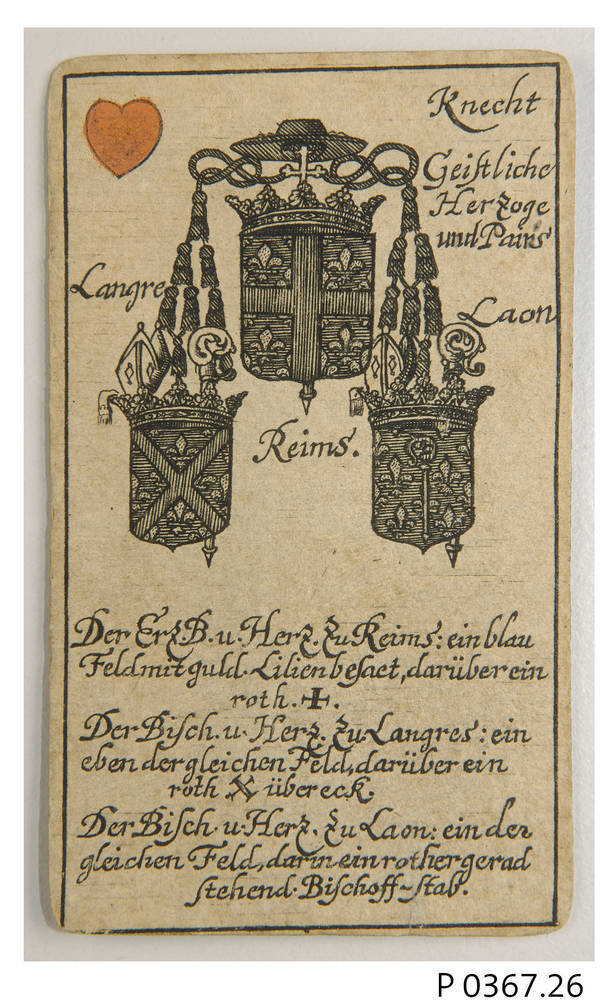 Knecht
Geistliche
Herzoge
und Pairs
Langre
Laon
Reims.
Der Erz.B.u.Herz.zu Reims: ein blau
Feld mit guld. Lilien besaet, darüber ein
roth. ✚.
Der Bisch.u.Herz. zu Langres: ein
eben dergleichen Feld, darüber ein
roth X übereck.
Der Bisch.u.Herz. zu Laon: ein der
gleichen Feld, darin ein rother gerad
stehend. Bischoff-stab.
P 0367.26